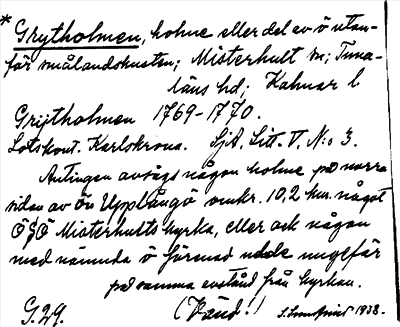 * Grytholmen, holme eller del av ö utan-
för smålandskusten; Misterhult sn; Tuna-
läns hd; Kalmar l
Grijtholmen 1769-1770.
Lotskont. Karlskrona. SjA, Litt. V. N:o 3.
Antingen avsågs någon holme på norra
sidan av ön Upplångö omkr. 10,2 km. något
OSO Misterhults kyrka, eller ock någon
med nämnda ö förenad udde ungefär
på samma avstånd från kyrkan.
G.29. (Vänd!) 1938.